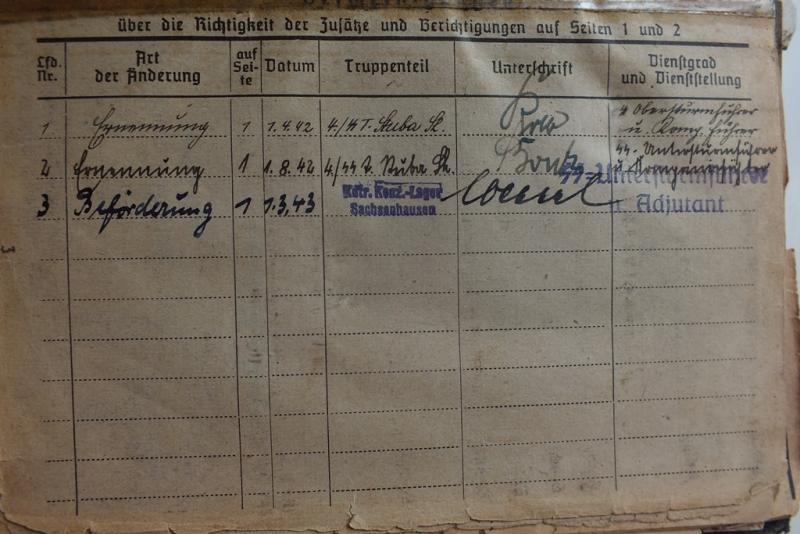 über die Richtigkeit der Zusätze und Berichtigungen auf Seiten 1 und 2
Lfd. Nr.
Art der Änderung
auf Sei-te
Datum
Truppenteil
Unterschrift
Dienstgrad und Dienststellung
1 Ernennung 1 1.4.42 Obersturmführer
u. Komp. Führer
2 Ernennung 1 1.8.42 Untersturmführer
3 Beförderung 1 1.3.43 Kdtr. Konz.-Lager
Sachsenhausen
Untersturmführer
u. Adjutant